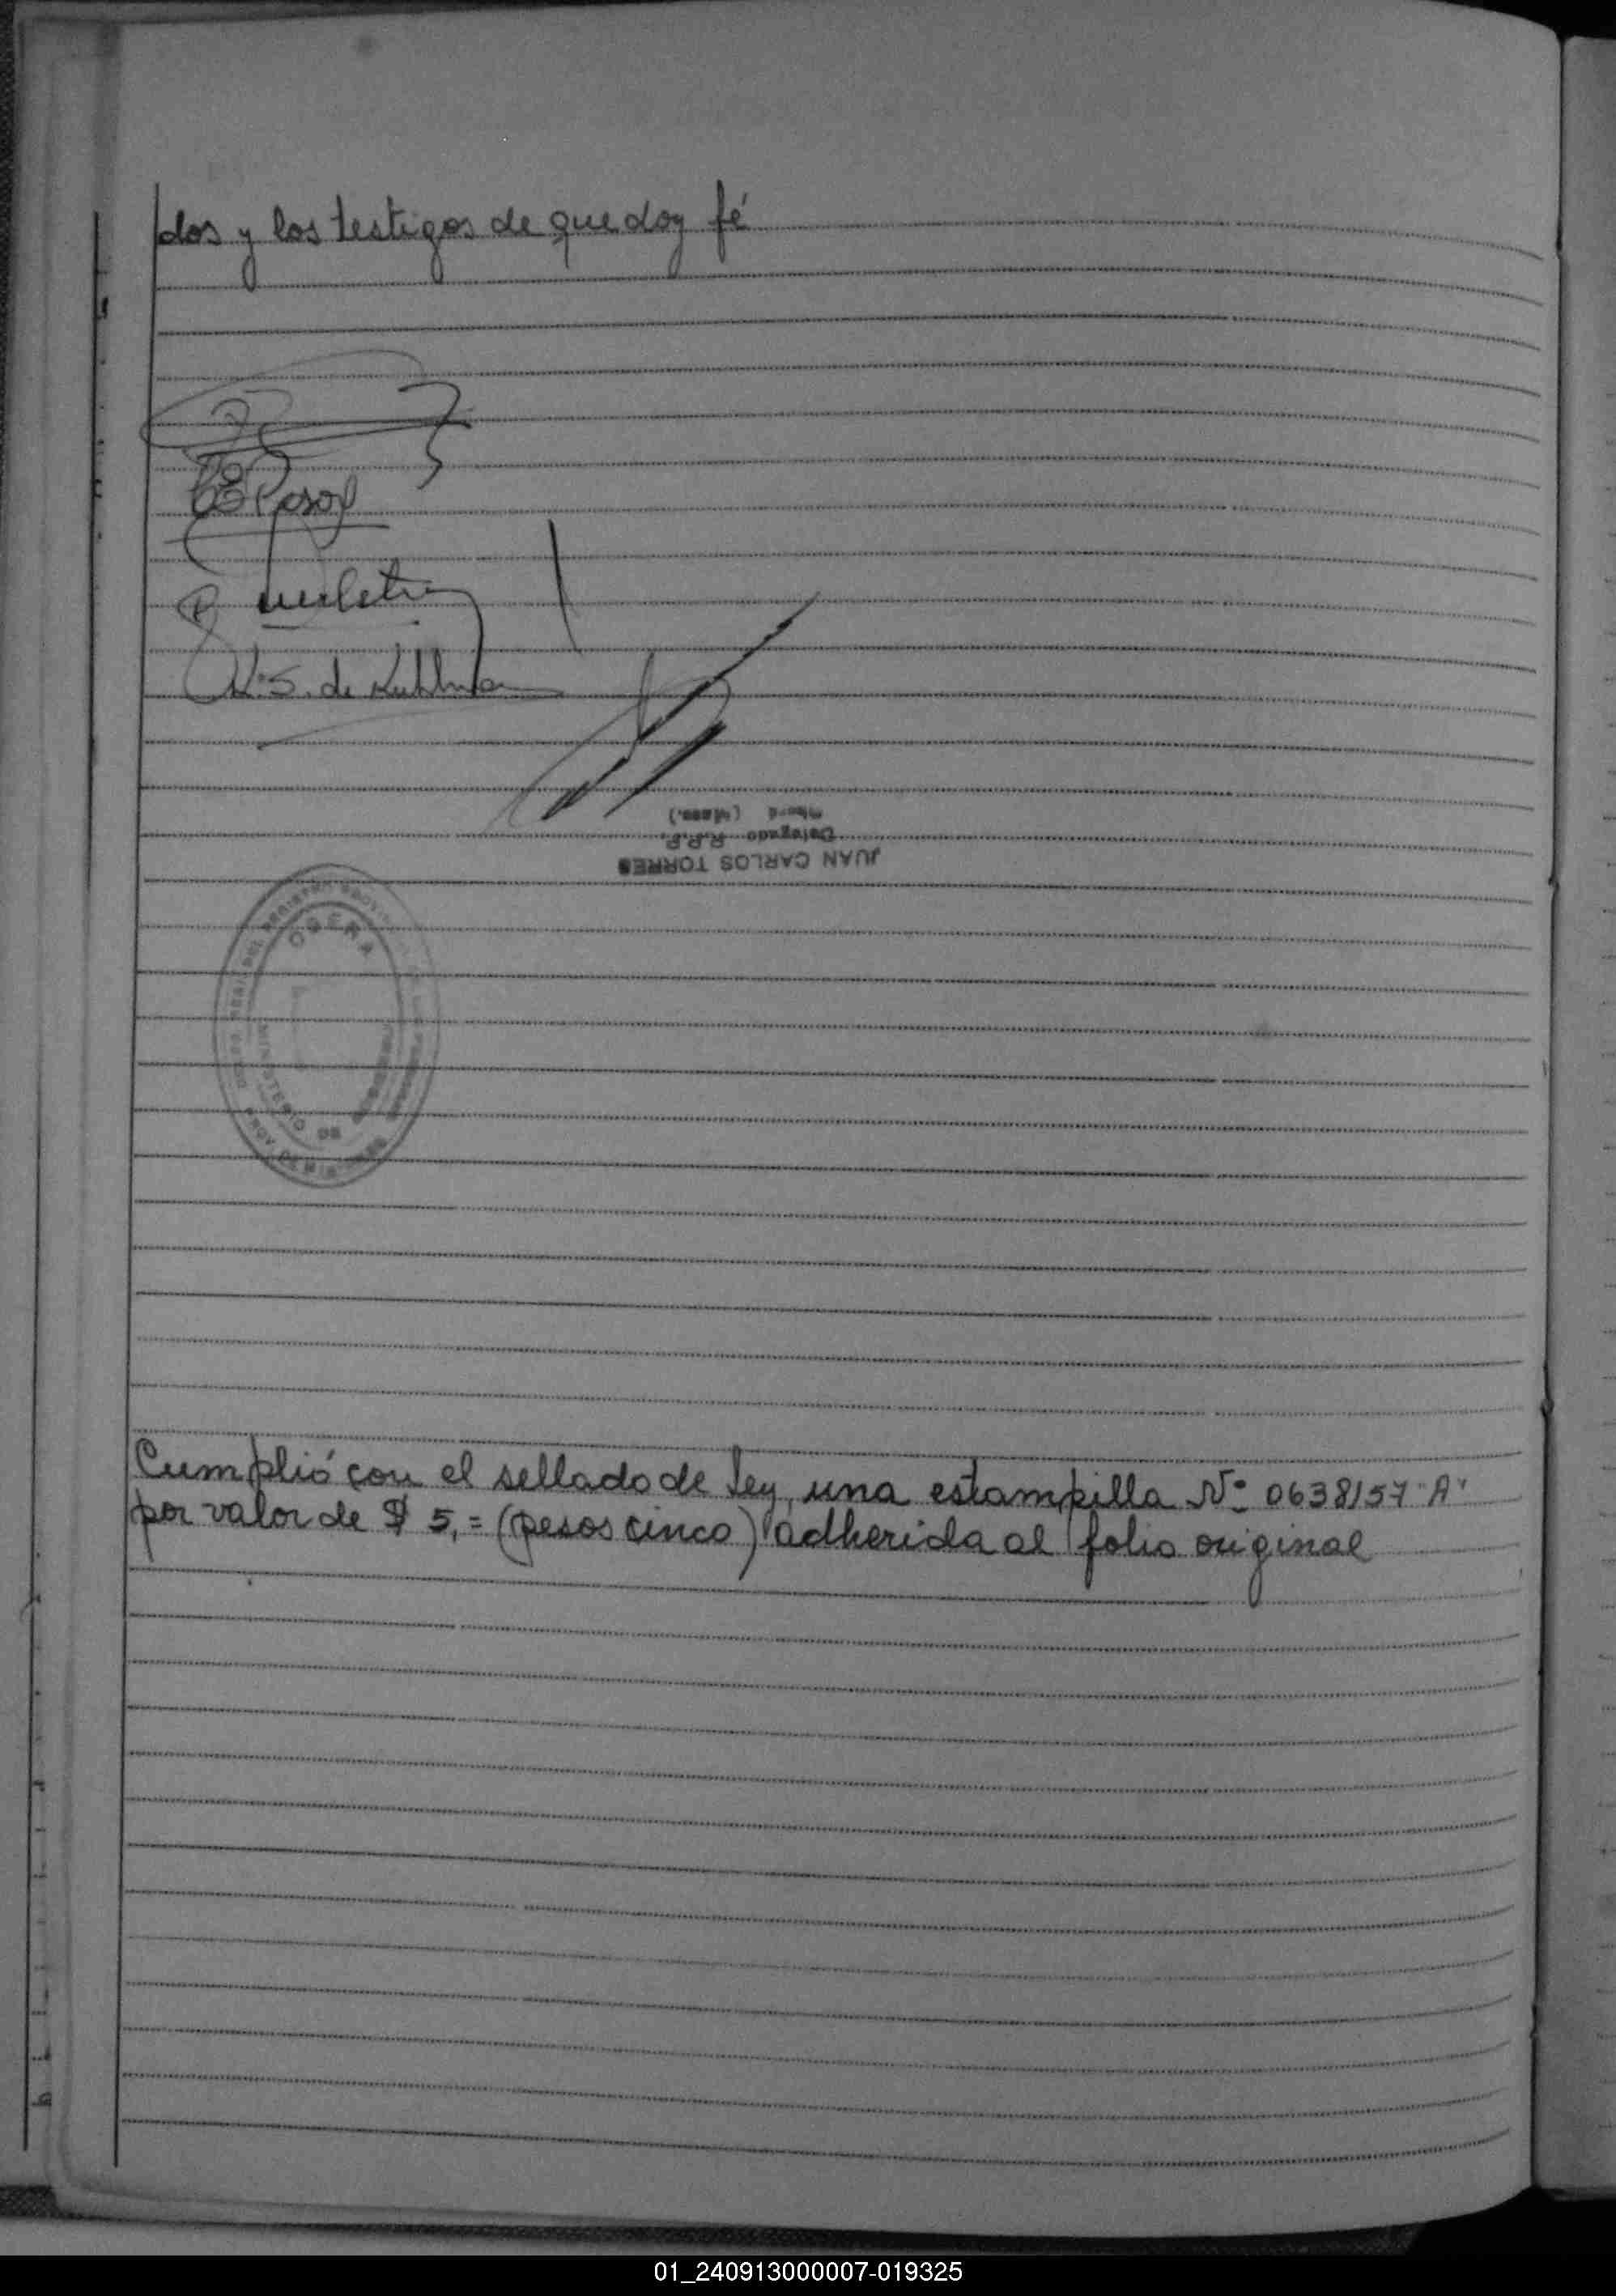 dos y los testigos de que doy fé
K. S. de Kuhlman
JUAN CARLOS TORRES
Delegado R.P.P.
OBERA
MINISTERIO DE
Cumplió con el sellado de ley, una estampilla Nº 0638157 "A"
por valor de $ 5,= (pesos cinco) adherida al folio original
01_240913000007-019325